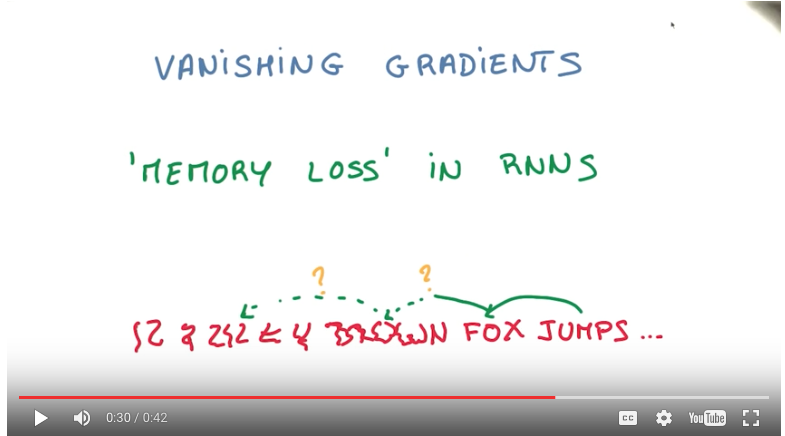 VANISHING GRADIENTS
'MEMORY LOSS' IN RNNS
? ?
FOX JUMPS ...
0:30 / 0:42 CC YouTube